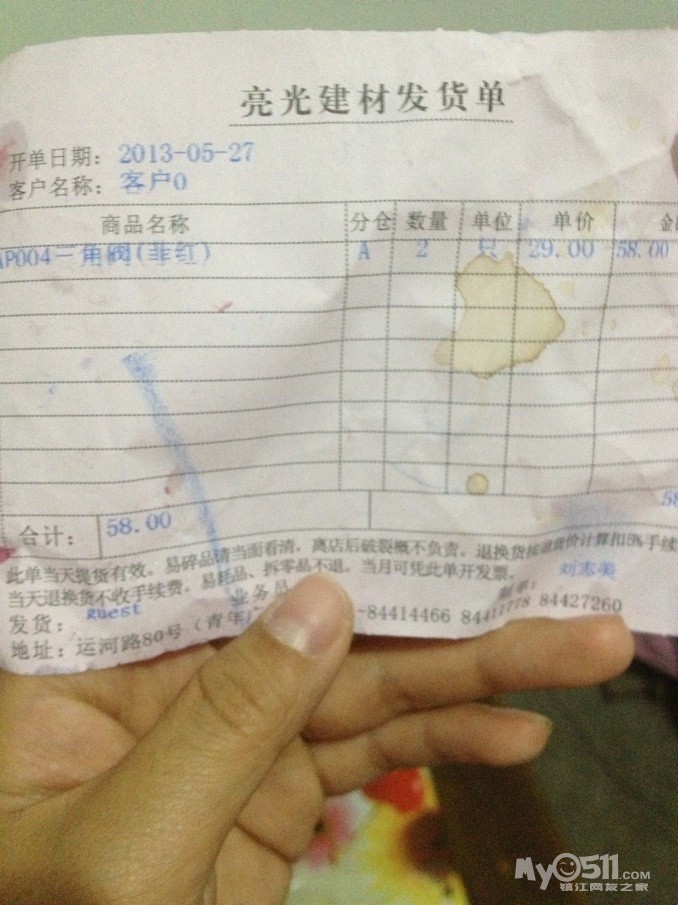 亮光建材发货单
开单日期: 2013-05-27
客户名称: 客户0
商品名称 分仓 数量 单位 单价
AP004-三角阀(菲红) A 2 只 29.00 58.00
合计: 58.00 58
此单当天提货有效。易碎品请当面看清,离店后破裂概不负责。退换货按退货价计算扣5%手续
当天退换货不收手续费。易耗品、拆零品不退。当月可凭此单开发票。
发货: guest 业务员 制单: 刘志美
地址: 运河路80号 (青年 -84414466 84427260
MY0511.COM
镇江网友之家